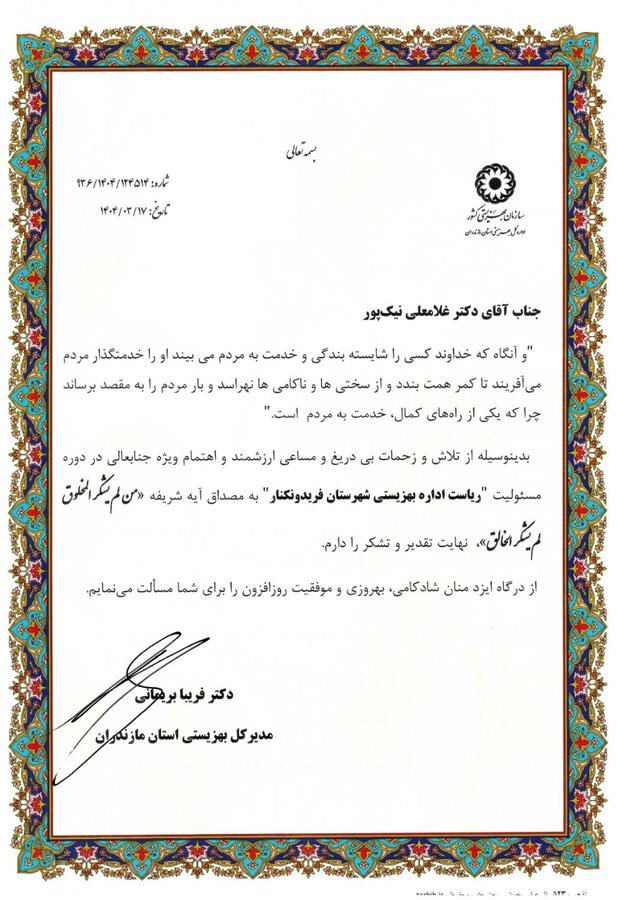 بسمه تعالی
سازمان بهزیستی کشور
اداره کل بهزیستی استان مازندران
شماره: ۹۳۶/۱۴۰۴/۱۲۴۵۱۴
تاریخ: ۱۴۰۴/۰۳/۱۷
جناب آقای دکتر غلامعلی نیک‌پور
"و آنگاه که خداوند کسی را شایسته بندگی و خدمت به مردم می بیند او را خدمتگذار مردم
می‌آفریند تا کمر همت بندد و از سختی ها و ناکامی ها نهراسد و بار مردم را به مقصد برساند
چرا که یکی از راه‌های کمال، خدمت به مردم است."
بدینوسیله از تلاش و زحمات بی دریغ و مساعی ارزشمند و اهتمام ویژه جنابعالی در دوره
مسئولیت "ریاست اداره بهزیستی شهرستان فریدونکنار" به مصداق آیه شریفه «من لم یشکر المخلوق
لم یشکر الخالق»، نهایت تقدیر و تشکر را دارم.
از درگاه ایزد منان شادکامی، بهروزی و موفقیت روزافزون را برای شما مسألت می‌نمایم.
دکتر فریبا بریمانی
مدیرکل بهزیستی استان مازندران